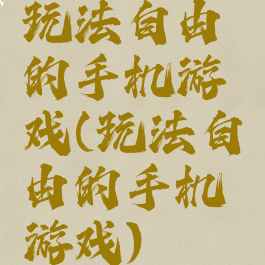 玩法自由
的手机游
戏(玩法自
由的手机
游戏)